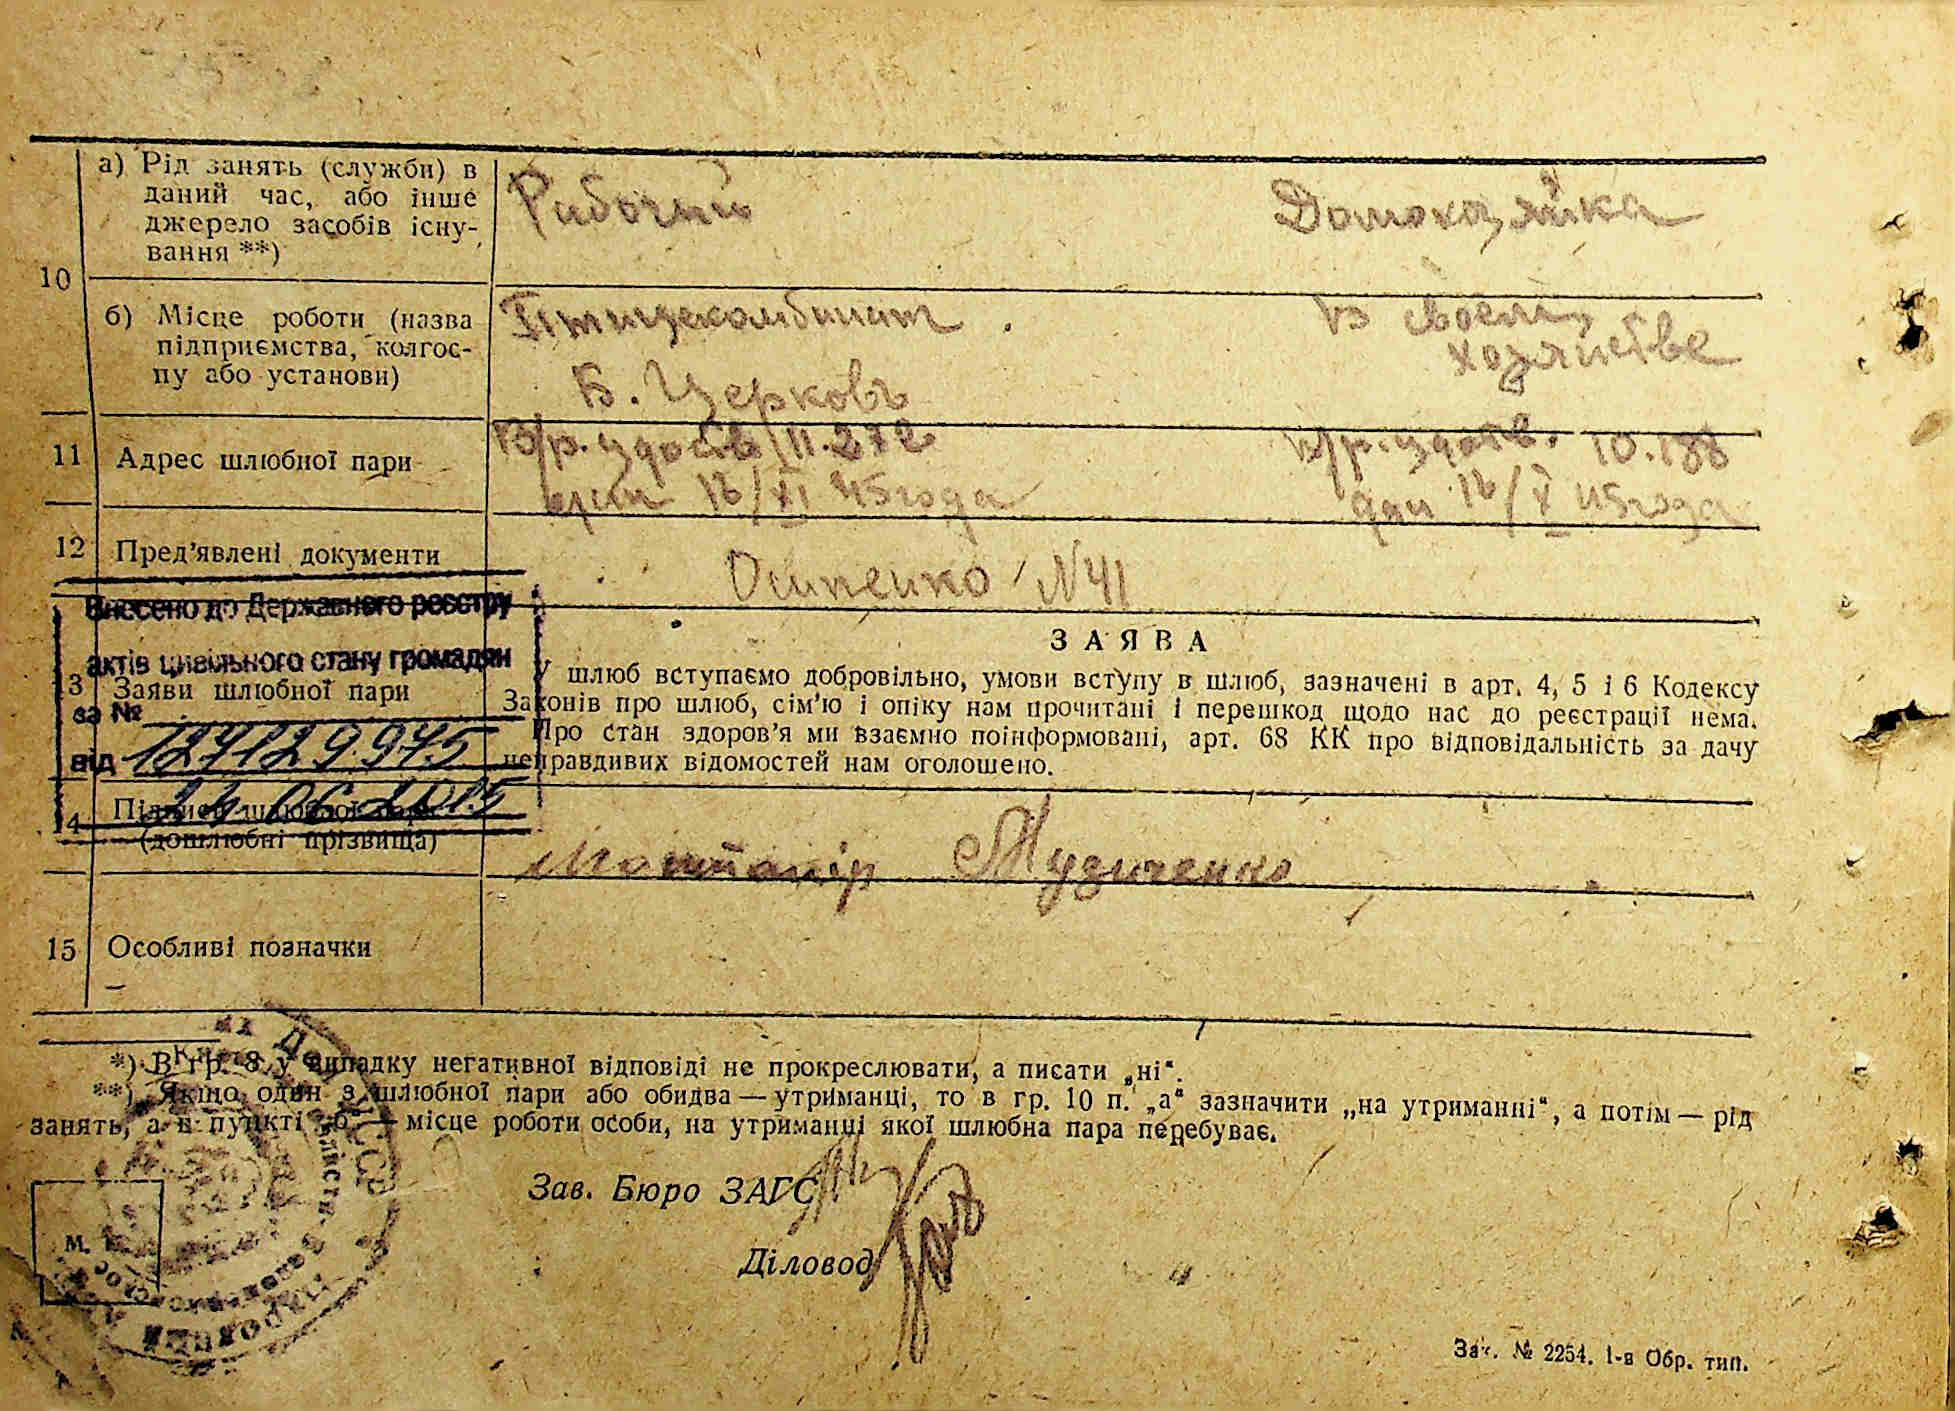 а) Рід занять (служби) в
даний час, або інше
джерело засобів існу-
вання **)
Рабочий
Домохозяйка
10
б) Місце роботи (назва
підприємства, колгос-
пу або установи)
Птицекомбинат
Б. Церковь
в своем
хозяйстве
11
Адрес шлюбної пари
В/р. удостов 11.272
16/XI 45 года
в/р. удостов. 10.188
16/X 45 года
12
Пред’явлені документи
Осипенко №41
Внесено до Державного реєстру
актів цивільного стану громадян
за №
від
ЗАЯВА
3
Заяви шлюбної пари
У шлюб вступаємо добровільно, умови вступу в шлюб, зазначені в арт. 4, 5 і 6 Кодексу
Законів про шлюб, сім’ю і опіку нам прочитані і перешкод щодо нас до реєстрації нема.
Про стан здоров’я ми взаємно поінформовані, арт. 68 КК про відповідальність за дачу
неправдивих відомостей нам оголошено.
4
Підписи шлюбної пари
(дошлюбні прізвища)
Музиченко
15
Особливі позначки
*) В гр. 8 у випадку негативної відповіді не прокреслювати, а писати „ні“.
**) Якщо один з шлюбної пари або обидва — утриманці, то в гр. 10 п. „а“ зазначити „на утриманні“, а потім — рід
занять, а в пункті „б“ — місце роботи особи, на утриманці якої шлюбна пара перебуває.
Зав. Бюро ЗАГС
Діловод
М.
Зак. № 2254. 1-а Обр. тип.